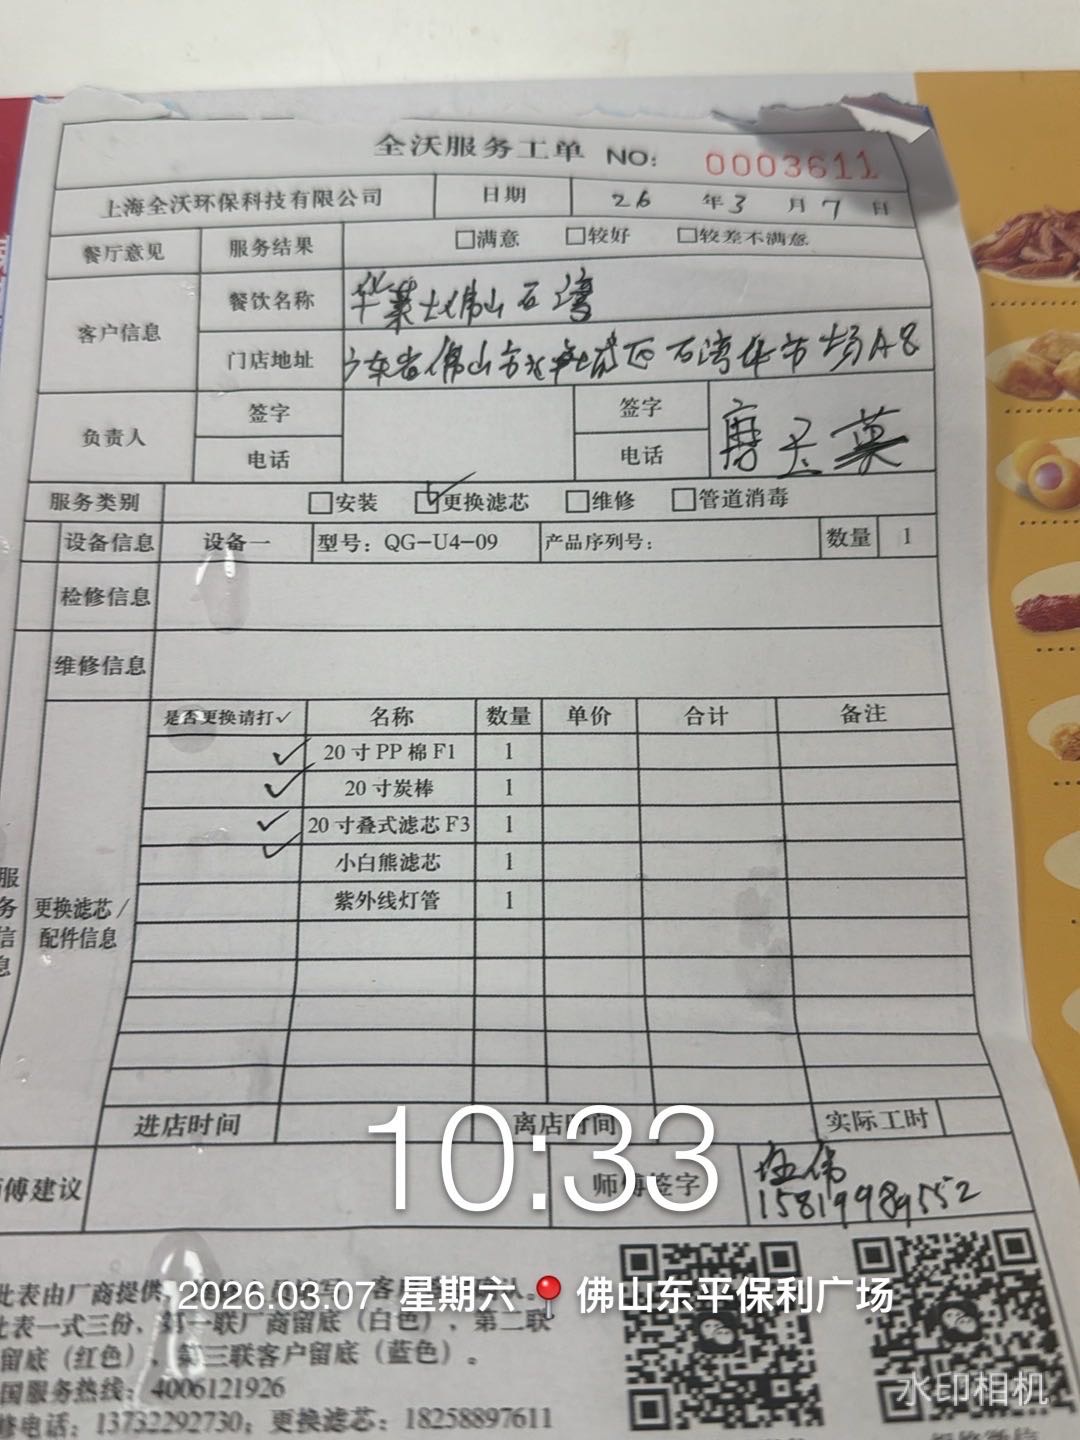 全沃服务工单 NO: 0003611
上海全沃环保科技有限公司 日期 26 年 3 月 7 日
餐厅意见 服务结果 □满意 □较好 □较差不满意
客户信息 餐饮名称 华莱士佛山石湾
门店地址 广东省佛山市 石湾 市场A8
负责人 签字 签字
电话 电话
服务类别 □安装 ☑更换滤芯 □维修 □管道消毒
设备信息 设备一 型号: QG-U4-09 产品序列号: 数量 1
检修信息
维修信息
是否更换请打✓ 名称 数量 单价 合计 备注
✓ 20寸PP棉F1 1
✓ 20寸炭棒 1
✓ 20寸叠式滤芯F3 1
✓ 小白熊滤芯 1
紫外线灯管 1
服务信息
更换滤芯/
配件信息
进店时间 离店时间 实际工时
10:33
傅建议 师傅签字 伟
15819989552
此表由厂商提供,
2026.03.07 星期六 佛山东平保利广场
此表一式三份,第一联厂商留底(白色),第二联
留底(红色),第三联客户留底(蓝色)。
国服务热线: 4006121926
修电话: 13732292730; 更换滤芯: 18258897611
水印相机